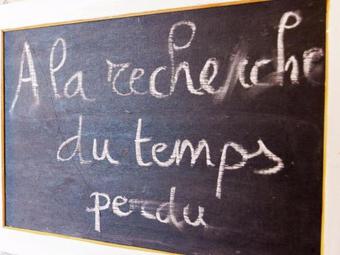 A la recherche
du temps
perdu